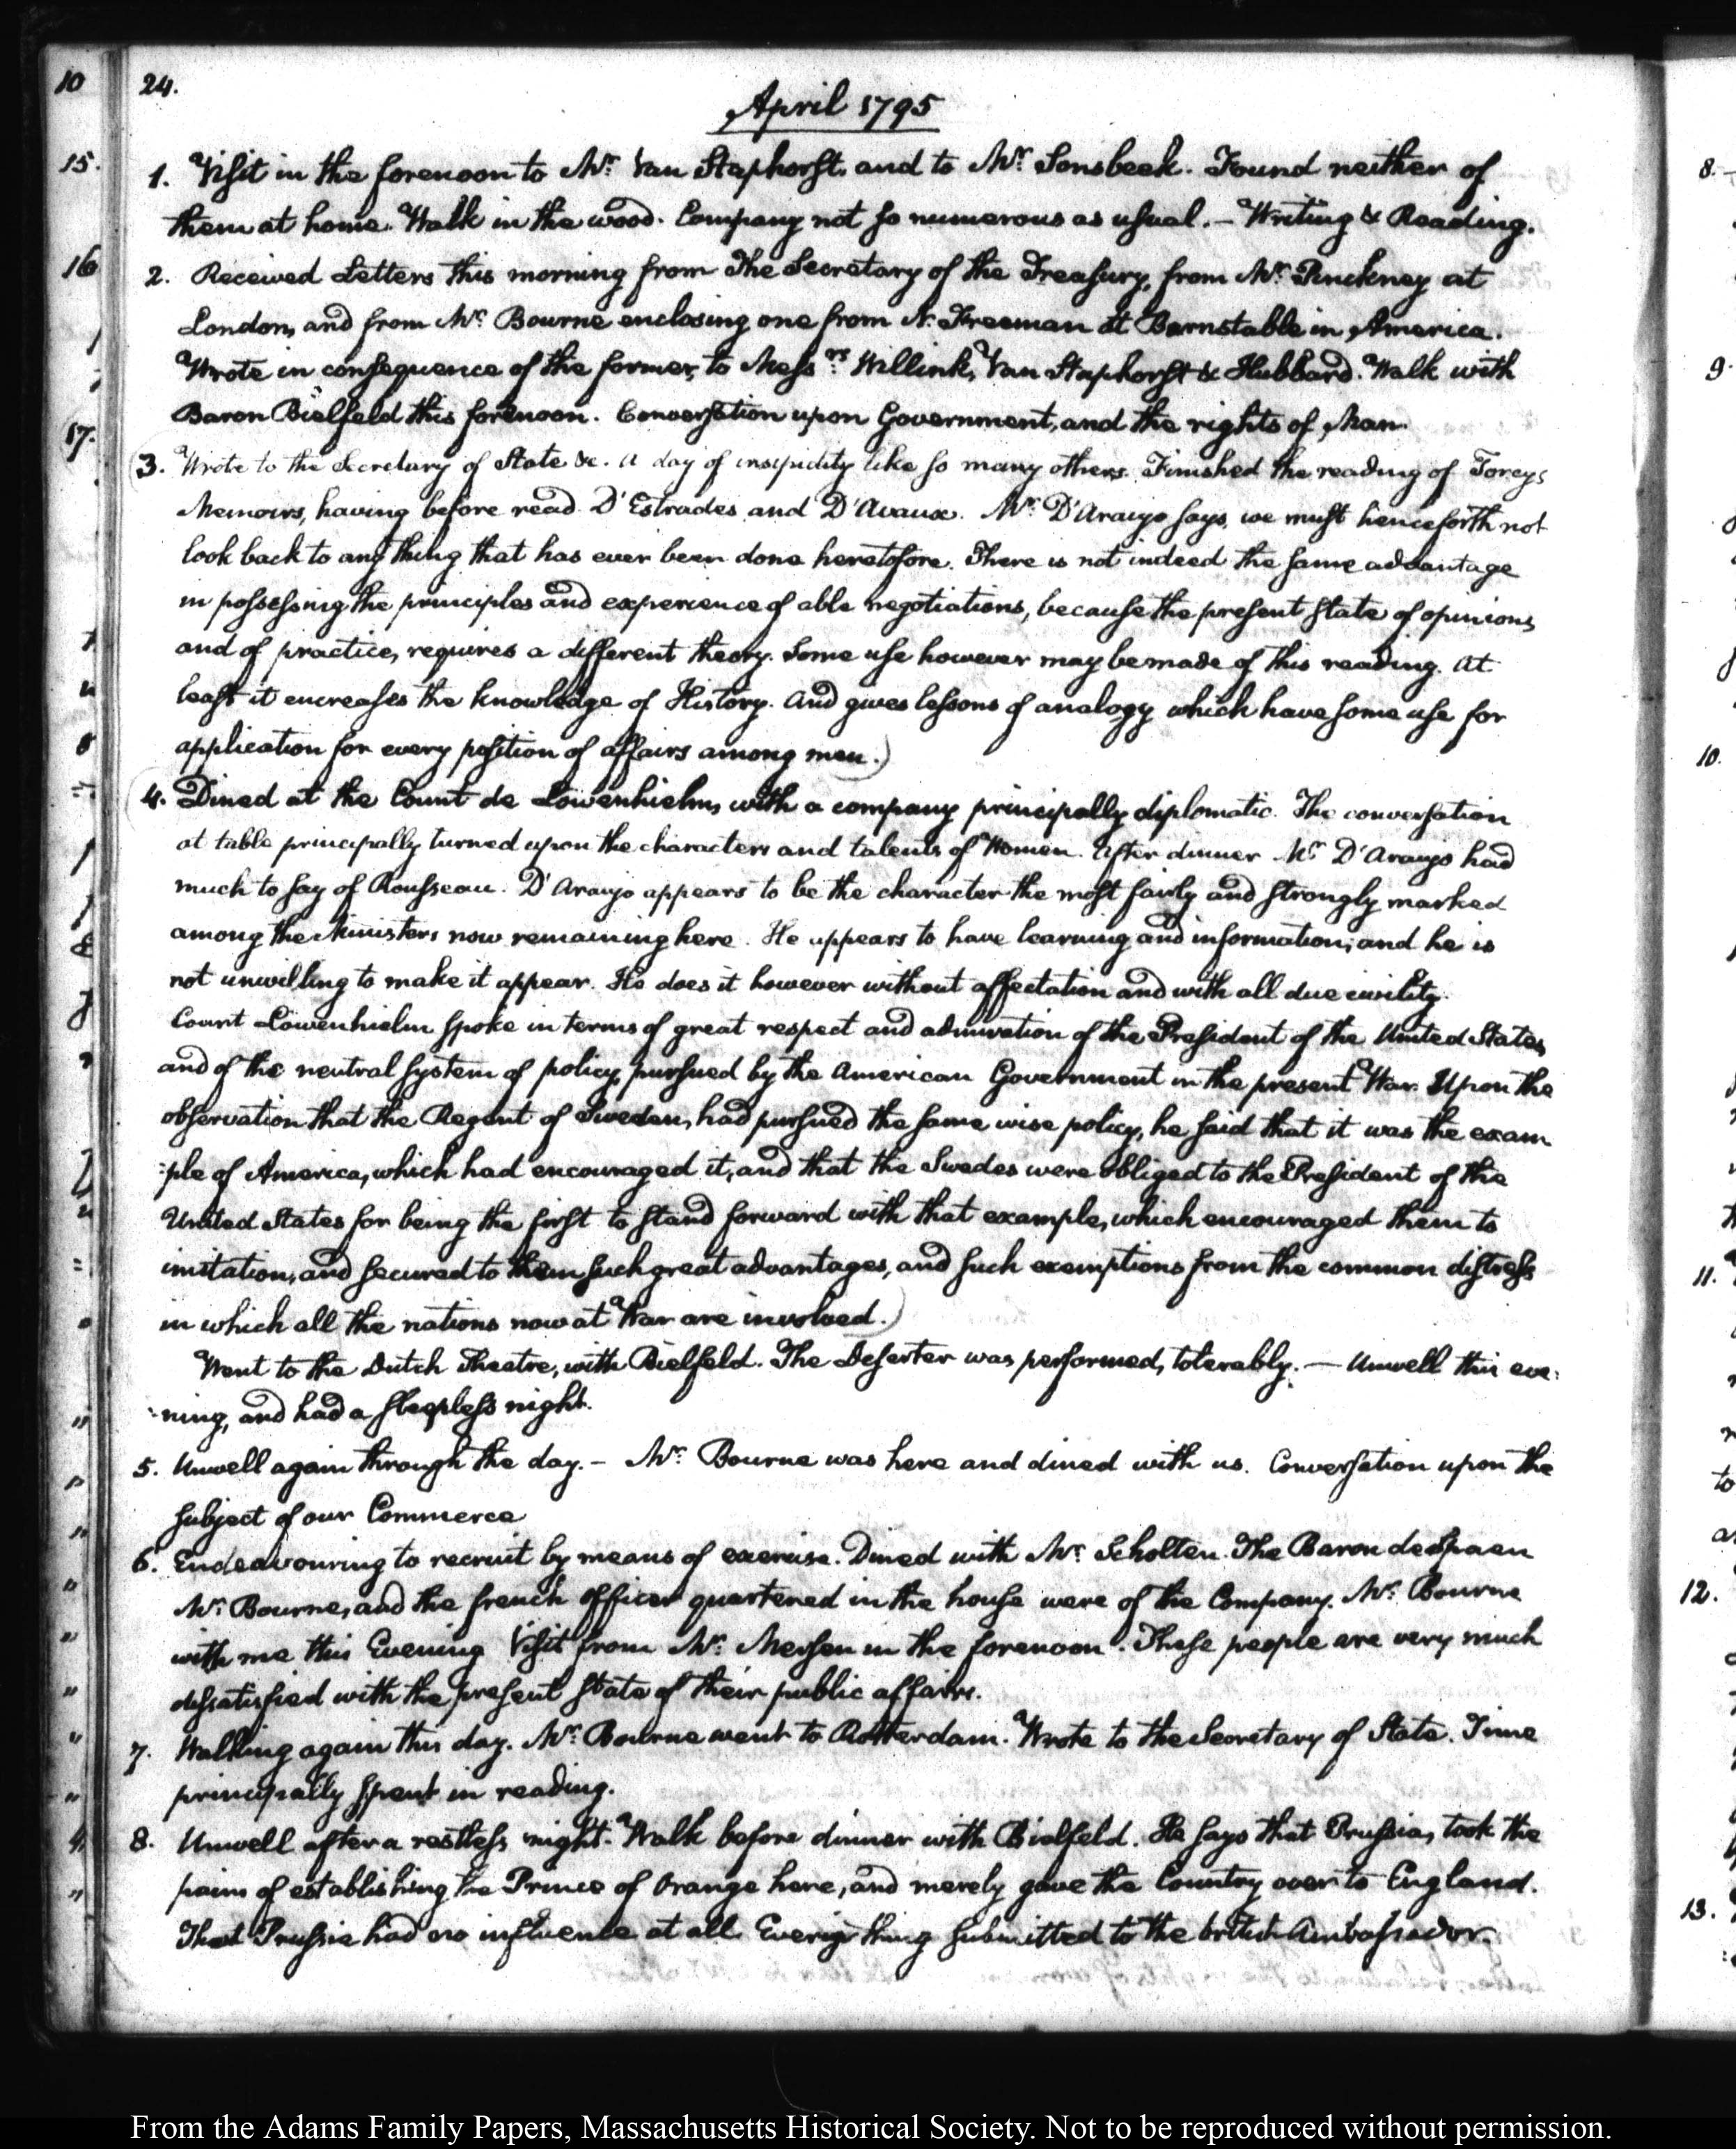 24.
April 1795
1. Visit in the forenoon to Mr. Van Staphorst, and to Mr. Sonsbeek. Found neither of
them at home. Walk in the wood. Company not so numerous as usual. — Writing & Reading.
2. Received Letters this morning from The Secretary of the Treasury, from Mr. Pinckney at
London, and from Mr. Bourne enclosing one from N. Freeman at Barnstable in America.
Wrote in consequence of the former, to Messrs. Willink, Van Staphorst & Hubbard. Walk with
Baron Bielfeld this forenoon. Conversation upon Government, and the rights of Man.
3. Wrote to the Secretary of State &c. A day of insipidity like so many others. Finished the reading of Torcys
Memoirs, having before read D'Estrades and D'Avaux. Mr. D'Araujo says, we must henceforth not
look back to any thing that has ever been done heretofore. There is not indeed the same advantage
in possessing the principles and experience of able negotiations, because the present state of opinions,
and of practice, requires a different theory. Some use however may be made of this reading. At
least it encreases the knowledge of History. And gives lessons of analogy which have some use for
application for every position of affairs among men.)
4. Dined at the Count de Löwenhielm, with a company principally diplomatic. The conversation
at table principally turned upon the characters and talents of Women. After dinner Mr. D'Araujo had
much to say of Rousseau. D'Araujo appears to be the character the most fairly and strongly marked
among the Ministers now remaining here. He appears to have learning and information; and he is
not unwilling to make it appear. He does it however without affectation and with all due civility.
Count Löwenhielm spoke in terms of great respect and admiration of the President of the United States,
and of the neutral system of policy, pursued by the American Government in the present War. Upon the
observation that the Regent of Sweden, had pursued the same wise policy, he said that it was the exam
:ple of America, which had encouraged it, and that the Swedes were obliged to the President of the
United States for being the first to stand forward with that example, which encouraged them to
imitation, and secured to them such great advantages, and such exemptions from the common distress
in which all the nations now at War are involved.)
Went to the Dutch Theatre, with Bielfeld. The Deserter was performed, tolerably. — Unwell this eve:
:ning, and had a sleepless night.
5. Unwell again through the day. — Mr. Bourne was here and dined with us. Conversation upon the
subject of our Commerce
6. Endeavouring to recruit by means of exercise. Dined with Mr. Scholten. The Baron de Spaen
Mr. Bourne, and the french officer quartered in the house were of the Company. Mr. Bourne
with me this Evening. Visit from Mr. Meysen in the forenoon. These people are very much
dissatisfied with the present state of their public affairs.
7. Walking again this day. Mr. Bourne went to Rotterdam. Wrote to the Secretary of State. Time
principally spent in reading.
8. Unwell after a restless night. Walk before dinner with Bielfeld. He says that Prussia, took the
pains of establishing the Prince of Orange here, and merely gave the Country over to England.
That Prussia had no influence at all. Every thing submitted to the british Ambassador.
10
15.
16
17.
8.
9.
10.
11.
12.
13.
From the Adams Family Papers, Massachusetts Historical Society. Not to be reproduced without permission.